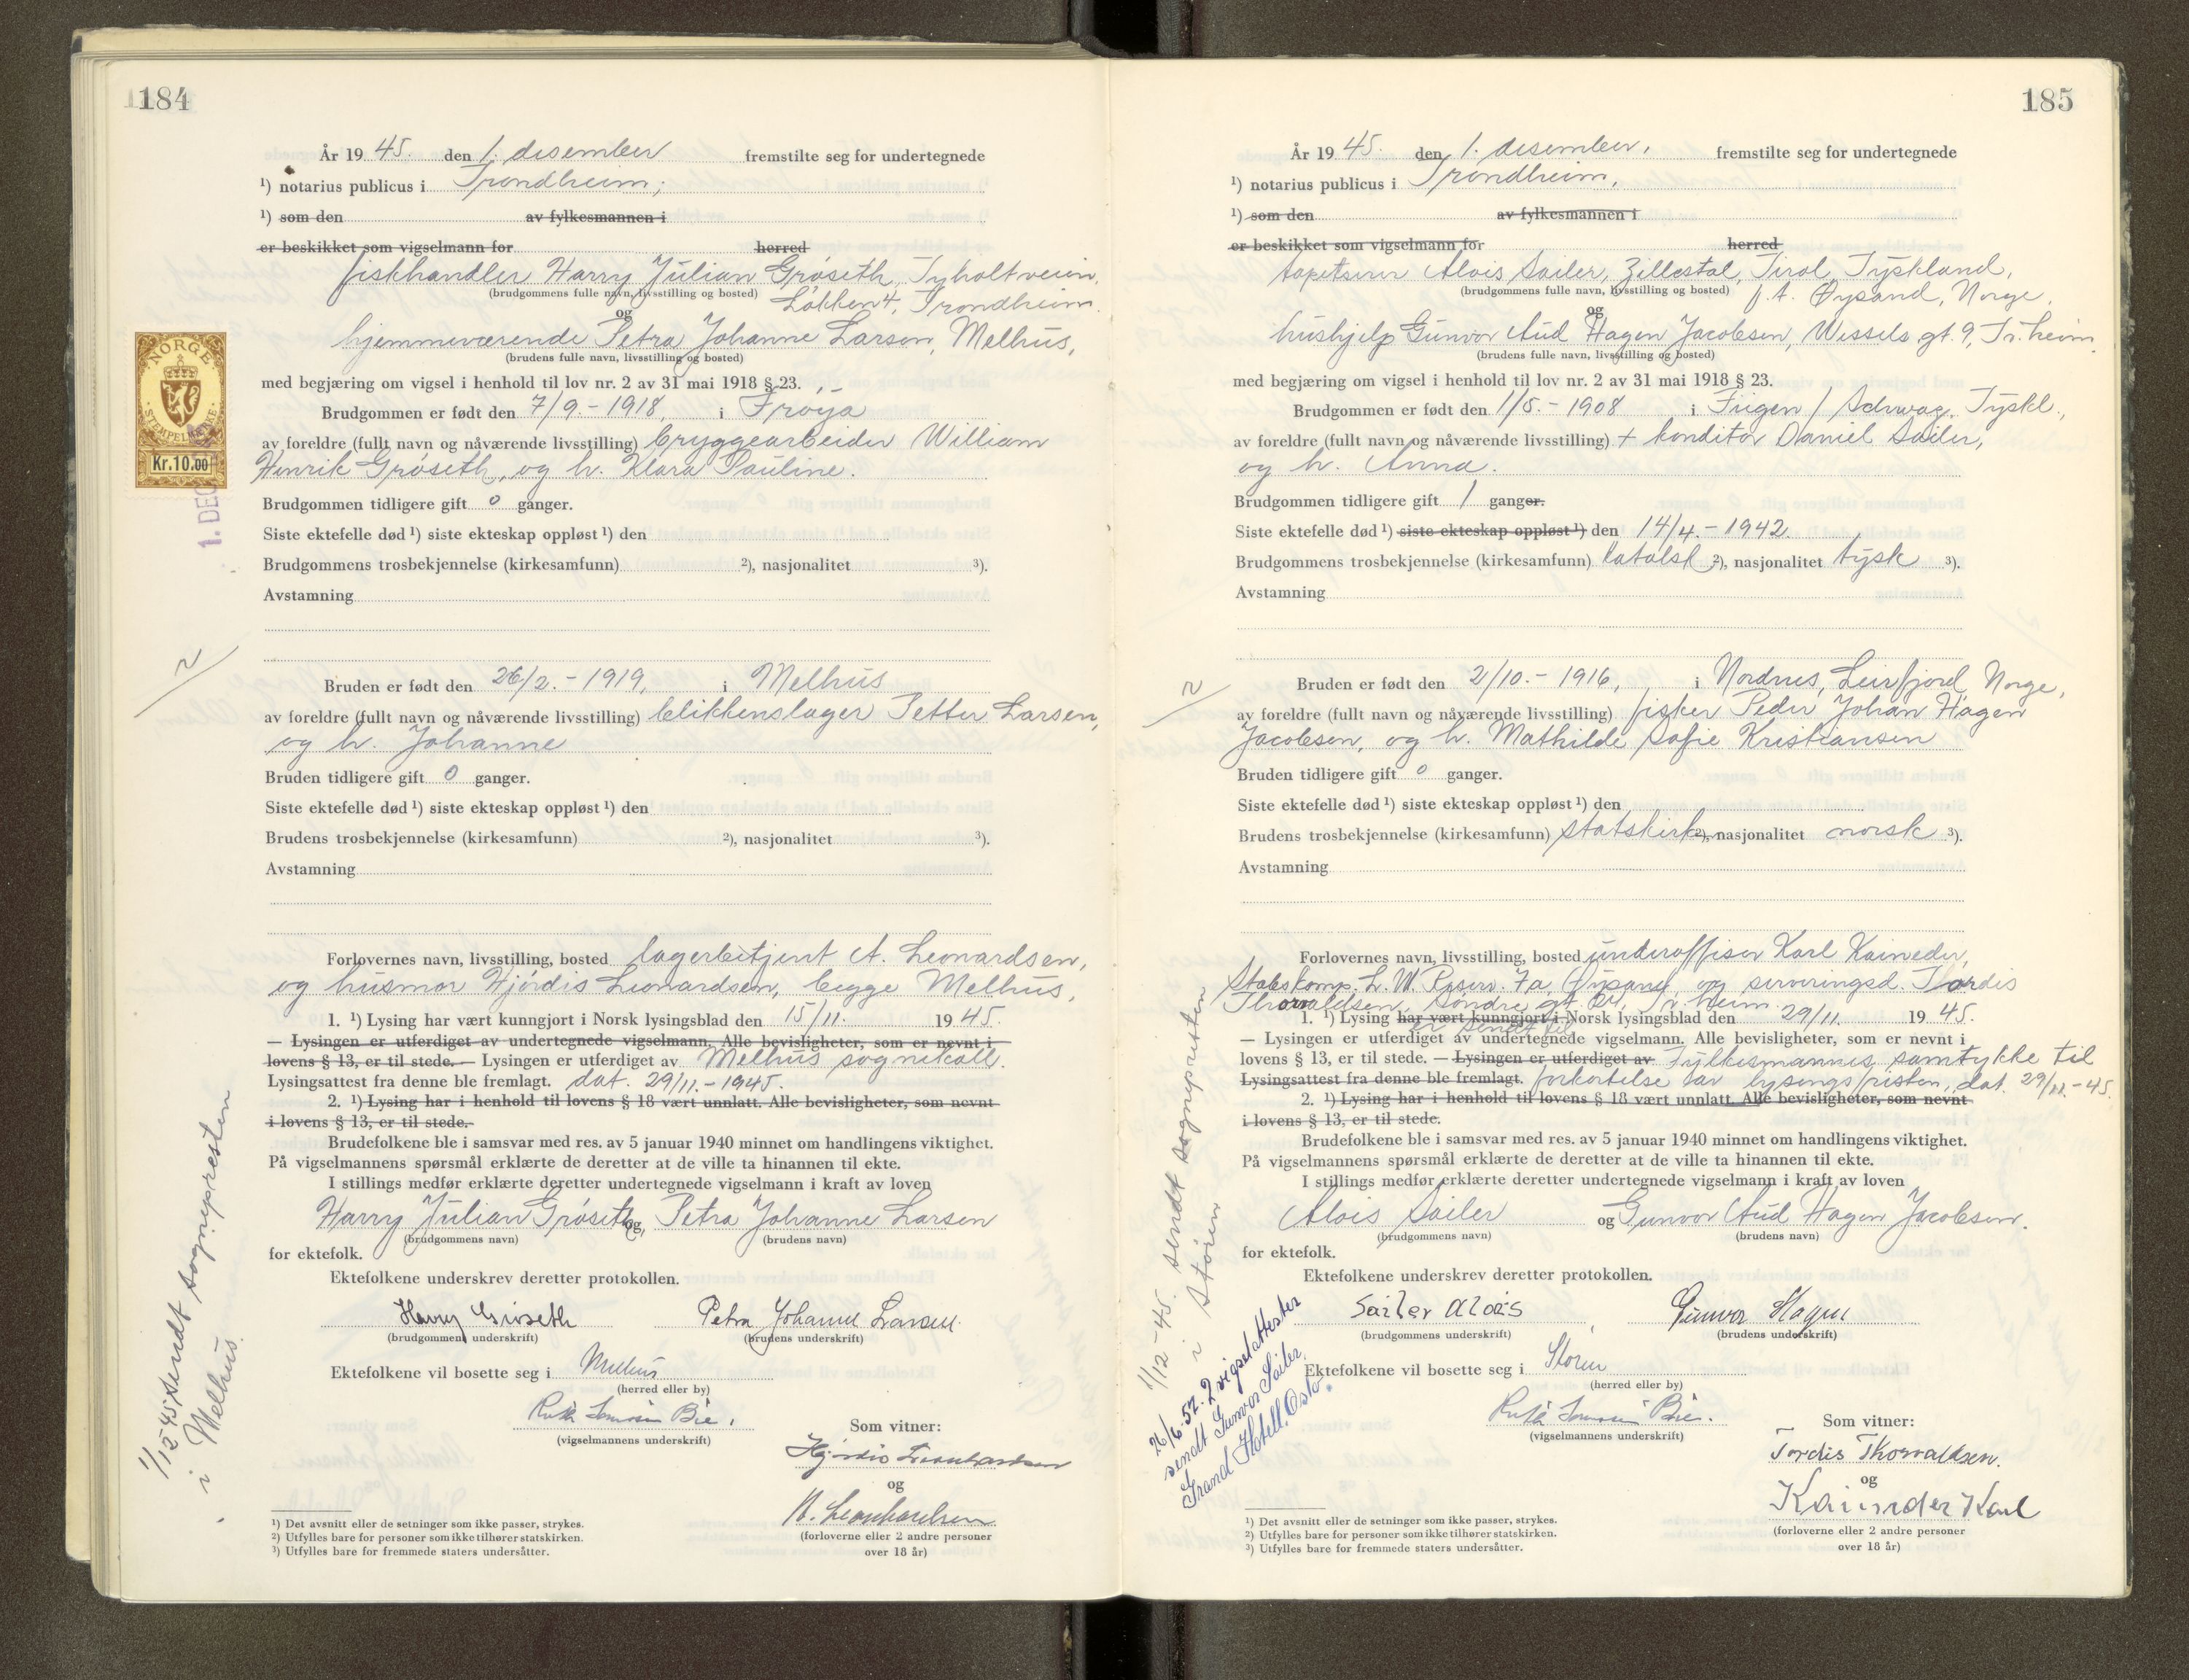 184
År 19 45. den 1. desember fremstilte seg for undertegnede
¹) notarius publicus i Trondheim;
¹) som den av fylkesmannen i
er beskikket som vigselmann for herred
fiskhandler Harry Julian Grøseth, Tyholtveien,
(brudgommens fulle navn, livsstilling og bosted) Løkken 4, Trondheim.
og
hjemmeværende Petra Johanne Larsen, Melhus,
(brudens fulle navn, livsstilling og bosted)
med begjæring om vigsel i henhold til lov nr. 2 av 31 mai 1918 § 23.
NORGE
STEMPELMERKE
Kr.10.00
1. DEC
Brudgommen er født den 7/9.-1918, i Frøya
av foreldre (fullt navn og nåværende livsstilling) bryggearbeider William
Henrik Grøseth, og h. Klara Pauline.
Brudgommen tidligere gift 0 ganger.
Siste ektefelle død ¹) siste ekteskap oppløst ¹) den
Brudgommens trosbekjennelse (kirkesamfunn) ²), nasjonalitet ³).
Avstamning
Bruden er født den 26/2.-1919, i Melhus
av foreldre (fullt navn og nåværende livsstilling) blikkenslager Petter Larsen,
og h. Johanne
Bruden tidligere gift 0 ganger.
Siste ektefelle død ¹) siste ekteskap oppløst ¹) den
Brudens trosbekjennelse (kirkesamfunn) ²), nasjonalitet ³).
Avstamning
Forlovernes navn, livsstilling, bosted lagerbetjent A. Leonardsen,
og husmor Hjørdis Leonardsen, begge Melhus,
1. ¹) Lysing har vært kunngjort i Norsk lysingsblad den 15/11. 19 45.
— Lysingen er utferdiget av undertegnede vigselmann. Alle bevisligheter, som er nevnt i
lovens § 13, er til stede. — Lysingen er utferdiget av Melhus sognekall.
Lysingsattest fra denne ble fremlagt. dat. 29/11.-1945.
2. ¹) Lysing har i henhold til lovens § 18 vært unnlatt. Alle bevisligheter, som nevnt
i lovens § 13, er til stede.
Brudefolkene ble i samsvar med res. av 5 januar 1940 minnet om handlingens viktighet.
På vigselmannens spørsmål erklærte de deretter at de ville ta hinannen til ekte.
I stillings medfør erklærte deretter undertegnede vigselmann i kraft av loven
Harry Julian Grøseth og Petra Johanne Larsen
(brudgommens navn) (brudens navn)
for ektefolk.
Ektefolkene underskrev deretter protokollen.
Harry Grøseth Petra Johanne Larsen
(brudgommens underskrift) (brudens underskrift)
Ektefolkene vil bosette seg i Melhus
(herred eller by)
Ruth Bie.
(vigselmannens underskrift)
Som vitner:
Hjørdis Leonhardsen
og
A. Leonhardsen
(forloverne eller 2 andre personer
over 18 år)
1/12-45 sendt sognepresten
i Melhus.
¹) Det avsnitt eller de setninger som ikke passer, strykes.
²) Utfylles bare for personer som ikke tilhører statskirken.
³) Utfylles bare for fremmede staters undersåtter.
185
År 19 45. den 1. desember, fremstilte seg for undertegnede
¹) notarius publicus i Trondheim,
¹) som den av fylkesmannen i
er beskikket som vigselmann for herred
tapetserer Alois Sailer, Zillestal, Tirol, Tyskland,
(brudgommens fulle navn, livsstilling og bosted) f.t. Øysand, Norge,
og
hushjelp Gunvor Aud Hagen Jacobsen, Wessels gt. 9, Tr.heim,
(brudens fulle navn, livsstilling og bosted)
med begjæring om vigsel i henhold til lov nr. 2 av 31 mai 1918 § 23.
Brudgommen er født den 1/5.-1908 i Fügen / Schwaz, Tyskl.,
av foreldre (fullt navn og nåværende livsstilling) + konditor Daniel Sailer,
og h. Anna.
Brudgommen tidligere gift 1 ganger.
Siste ektefelle død ¹) siste ekteskap oppløst ¹) den 14/4.-1942.
Brudgommens trosbekjennelse (kirkesamfunn) katolsk ²), nasjonalitet tysk ³).
Avstamning
Bruden er født den 2/10.-1916, i Nordnes, Leirfjord, Norge,
av foreldre (fullt navn og nåværende livsstilling) fisker Peder Johan Hagen
Jacobsen, og h. Mathilde Sofie Kristiansen
Bruden tidligere gift 0 ganger.
Siste ektefelle død ¹) siste ekteskap oppløst ¹) den
Brudens trosbekjennelse (kirkesamfunn) statskirk ²), nasjonalitet norsk ³).
Avstamning
Forlovernes navn, livsstilling, bosted underoffiser Karl Kaineder,
Stabskomp. L.W. Reserv. 7a, Øysand, og serveringsd. Tordis
Thorvaldsen, Søndre gt. Tr.heim
1. ¹) Lysing har vært kunngjort i Norsk lysingsblad den 29/11. 19 45.
er sendt til
— Lysingen er utferdiget av undertegnede vigselmann. Alle bevisligheter, som er nevnt i
lovens § 13, er til stede. — Lysingen er utferdiget av Fylkesmannens samtykke til
Lysingsattest fra denne ble fremlagt. forkortelse av lysingsfristen, dat. 29/11.-45.
2. ¹) Lysing har i henhold til lovens § 18 vært unnlatt. Alle bevisligheter, som nevnt
i lovens § 13, er til stede.
Brudefolkene ble i samsvar med res. av 5 januar 1940 minnet om handlingens viktighet.
På vigselmannens spørsmål erklærte de deretter at de ville ta hinannen til ekte.
I stillings medfør erklærte deretter undertegnede vigselmann i kraft av loven
Alois Sailer og Gunvor Aud Hagen Jacobsen.
(brudgommens navn) (brudens navn)
for ektefolk.
Ektefolkene underskrev deretter protokollen.
Sailer Alois Gunvor Hagen
(brudgommens underskrift) (brudens underskrift)
Ektefolkene vil bosette seg i Støren
(herred eller by)
Ruth Bie.
(vigselmannens underskrift)
Som vitner:
Tordis Thorvaldsen.
og
Kaineder Karl
(forloverne eller 2 andre personer
over 18 år)
1/12-45. sendt sognepresten
i Støren
26/6-52. 2 vigselattester
sendt Gunvor Sailer,
Grand Hotell, Oslo.
¹) Det avsnitt eller de setninger som ikke passer, strykes.
²) Utfylles bare for personer som ikke tilhører statskirken.
³) Utfylles bare for fremmede staters undersåtter.